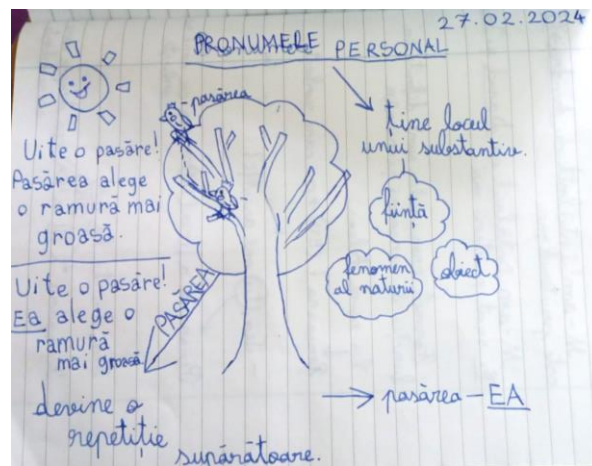 27.02.2024
PRONUMELE PERSONAL
pasărea
ține locul
unui substantiv.
ființă
fenomen
al naturii
obiect
Uite o pasăre!
Pasărea alege
o ramură mai
groasă.
Uite o pasăre!
Ea alege o
ramură
mai groasă.
PASĂREA
devine o
repetiție
supărătoare.
pasărea – EA